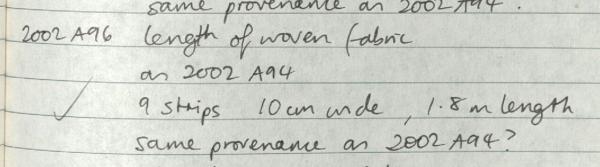 same provenance as 2002 A94.
2002 A96 length of woven fabric
as 2002 A94
9 strips 10 cm wide, 1.8 m length
same provenance as 2002 A94?